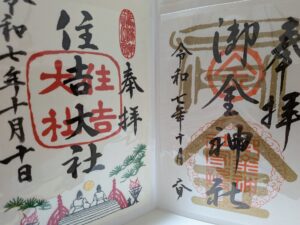 奉拝
住吉大社
住吉大社
令和七年十月十日
奉拝
御金神社
令和七年十月